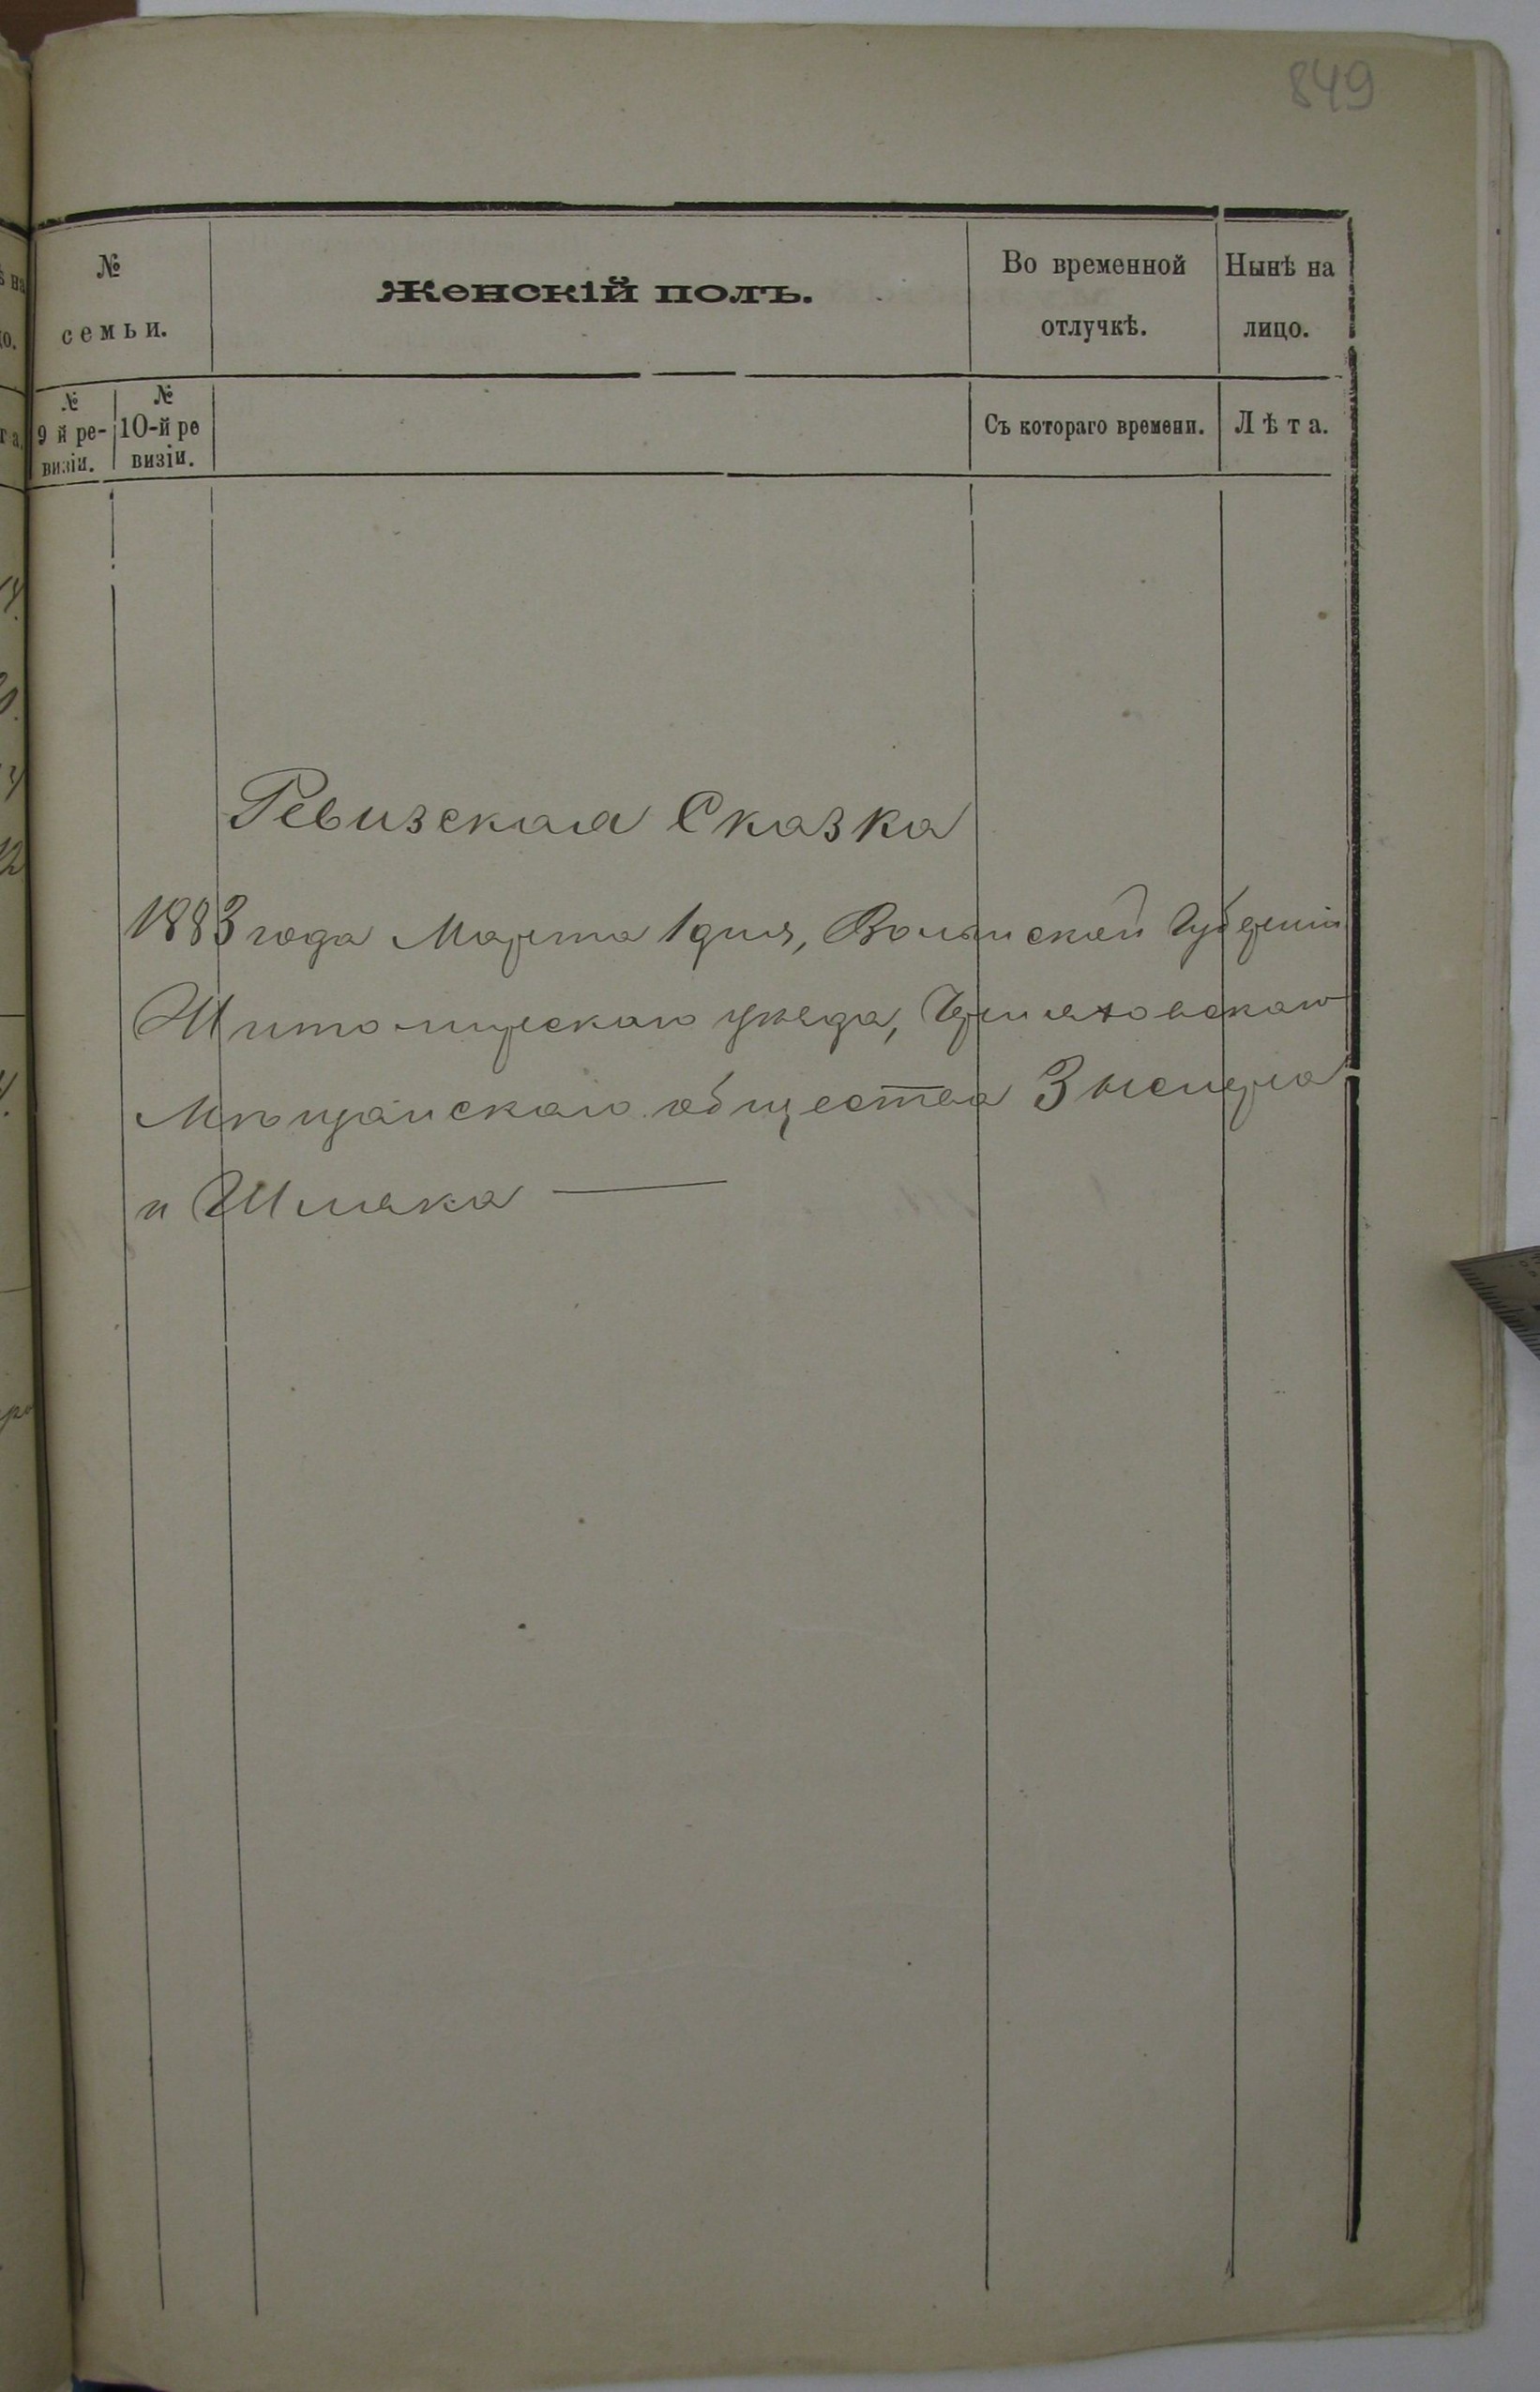 849
№
семьи.
Женскій полъ.
Во временной
отлучкѣ.
Нынѣ на
лицо.
№
9 й ре-
визіи.
№
10-й ре
визіи.
Съ котораго времени.
Лѣта.
Ревизская Сказка
1883 года Марта 1 дня, Волынской Губерніи
Житомирскаго уѣзда, Черняховскаго
Мѣщанскаго общества
и Шляка